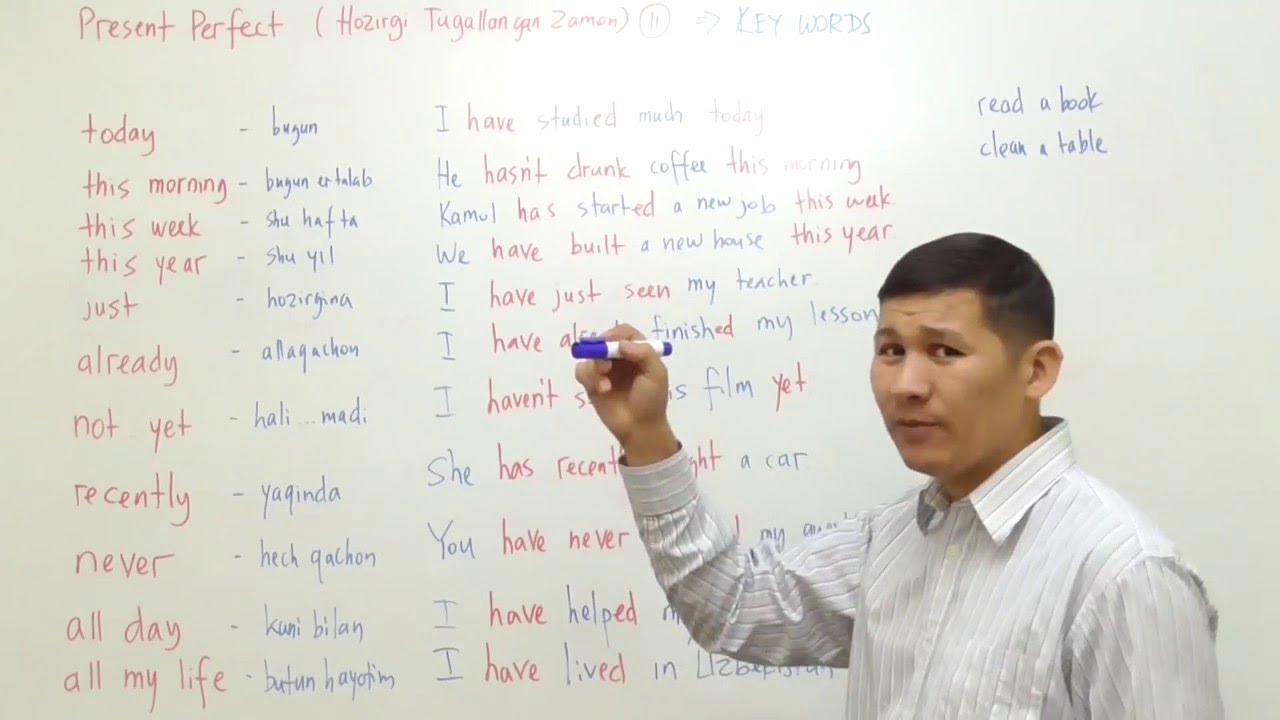 Present Perfect (Hozirgi Tugallangan Zamon) 11 => KEY WORDS
today - bugun I have studied much today
this morning - bugun ertalab He hasn't drunk coffee this morning
this week - shu hafta Kamol has started a new job this week.
this year - shu yil We have built a new house this year
just - hozirgina I have just seen my teacher.
already - allaqachon I have finished my lesson
not yet - hali ... madi I haven't film yet
recently - yaqinda She has a car
never - hech qachon You have never my
all day - kuni bilan I have helped
all my life - butun hayotim I have lived in Uzbekistan
read a book
clean a table